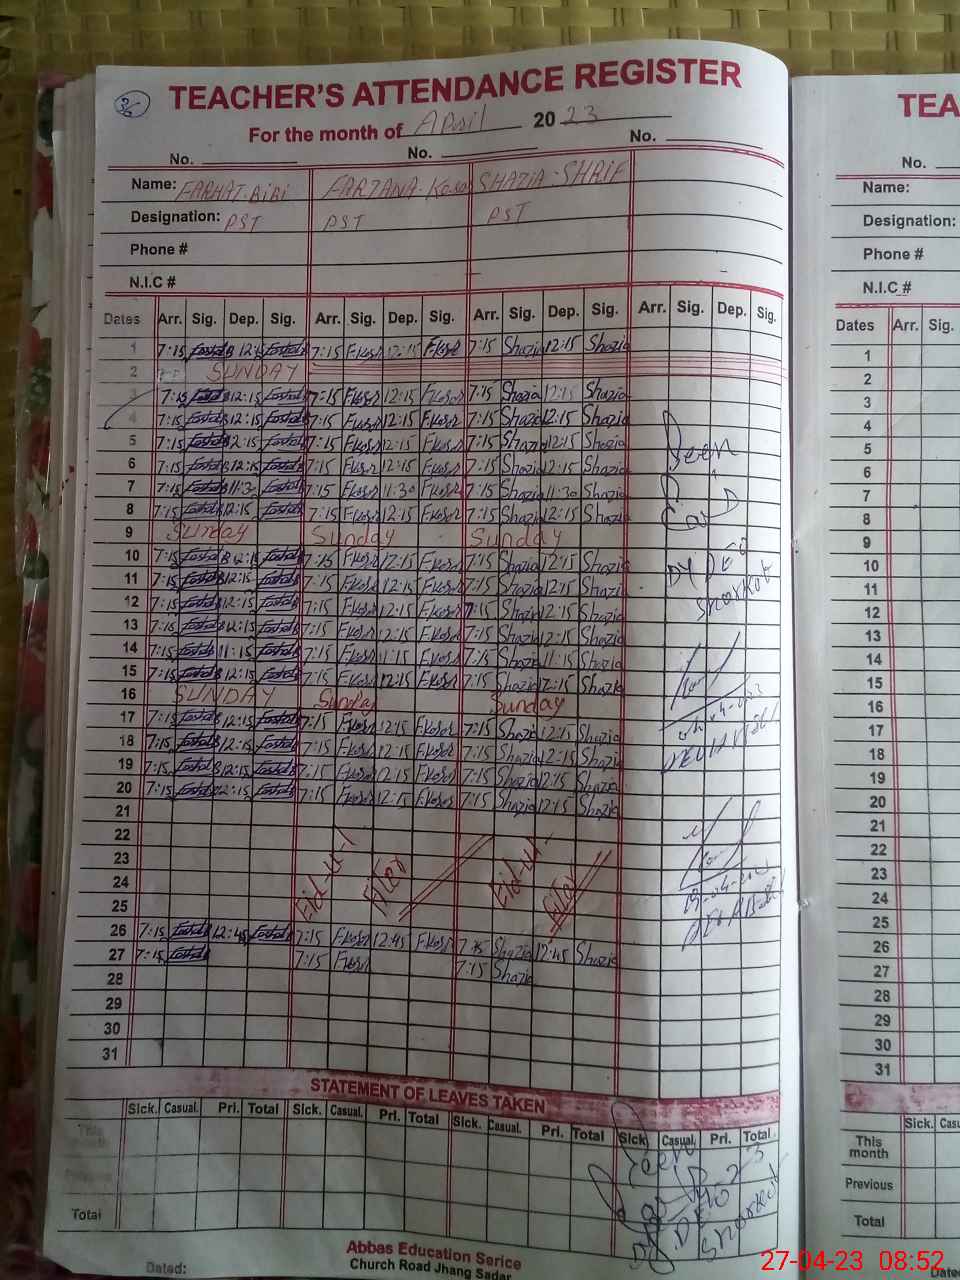 TEACHER'S ATTENDANCE REGISTER
For the month of April 2023
No. No. No.
Name: FARHAT.BiBi FARZANA. SHAZIA.SHRIF
Designation: PST PST PST
Phone #
N.I.C #
Dates Arr. Sig. Dep. Sig. Arr. Sig. Dep. Sig. Arr. Sig. Dep. Sig. Arr. Sig. Dep. Sig.
1 7:15 12:15 7:15 F.kosr 12:15 F.kosr 7:15 Shazia 12:15 Shazia
2 SUNDAY
3 7:15 12:15 7:15 F.kosr 12:15 F.kosr 7:15 Shazia 12:15 Shazia
4 7:15 12:15 7:15 F.kosr 12:15 F.kosr 7:15 Shazia 12:15 Shazia
5 7:15 12:15 7:15 F.kosr 12:15 F.kosr 7:15 Shazia 12:15 Shazia
6 7:15 12:15 7:15 F.kosr 12:15 F.kosr 7:15 Shazia 12:15 Shazia
7 7:15 11:30 7:15 F.kosr 11:30 F.kosr 7:15 Shazia 11:30 Shazia
8 7:15 12:15 7:15 F.kosr 12:15 F.kosr 7:15 Shazia 12:15 Shazia
9 Sunday Sunday Sunday
10 7:15 12:15 7:15 F.kosr 12:15 F.kosr 7:15 Shazia 12:15 Shazia
11 7:15 12:15 7:15 F.kosr 12:15 F.kosr 7:15 Shazia 12:15 Shazia
12 7:15 12:15 7:15 F.kosr 12:15 F.kosr 7:15 Shazia 12:15 Shazia
13 7:15 12:15 7:15 F.kosr 12:15 F.kosr 7:15 Shazia 12:15 Shazia
14 7:15 11:15 7:15 F.kosr 11:15 F.kosr 7:15 Shazia 11:15 Shazia
15 7:15 12:15 7:15 F.kosr 12:15 F.kosr 7:15 Shazia 12:15 Shazia
16 SUNDAY Sunday Sunday
17 7:15 12:15 7:15 F.kosr 12:15 F.kosr 7:15 Shazia 12:15 Shazia
18 7:15 12:15 7:15 F.kosr 12:15 F.kosr 7:15 Shazia 12:15 Shazia
19 7:15 12:15 7:15 F.kosr 12:15 F.kosr 7:15 Shazia 12:15 Shazia
20 7:15 12:15 7:15 F.kosr 12:15 F.kosr 7:15 Shazia 12:15 Shazia
21
22
23
24
25
Eid-ul-
Fiter
Eid-ul-
fitar
26 7:15 12:45 7:15 F.kosr 12:45 F.kosr 7:15 Shazia 12:45 Shazia
27 7:15 7:15 F.kosr 7:15 Shazia
28
29
30
31
Seen
Dy DEO
Shorkot
STATEMENT OF LEAVES TAKEN
Sick. Casual. Pri. Total Sick. Casual. Pri. Total Sick. Casual. Pri. Total Sick. Casual. Pri. Total
This month
Previous
Total
Seen
Dy. DEO
Shorkot
Abbas Education Serice
Church Road Jhang Sadar
Dated:
TEA
No.
Name:
Designation:
Phone #
N.I.C #
Dates Arr. Sig.
1
2
3
4
5
6
7
8
9
10
11
12
13
14
15
16
17
18
19
20
21
22
23
24
25
26
27
28
29
30
31
Sick.
This month
Previous
Total
27-04-23 08:52